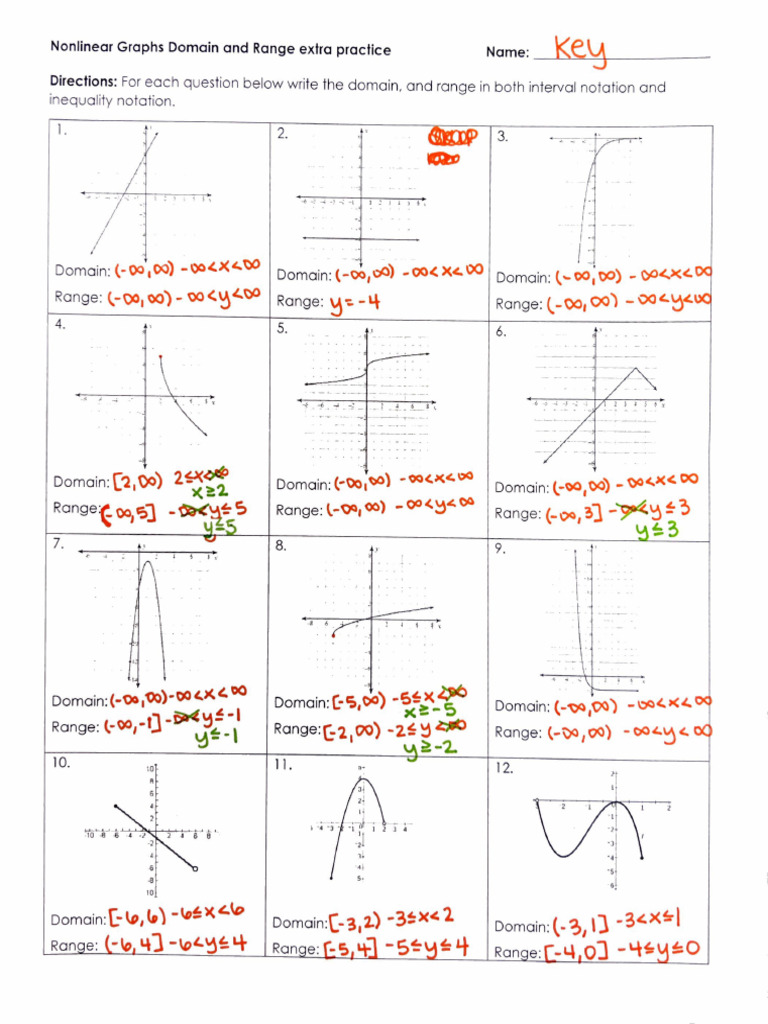 Nonlinear Graphs Domain and Range extra practice Name: Key
Directions: For each question below write the domain, and range in both interval notation and
inequality notation.
1.
Domain: (-∞,∞) -∞<x<∞
Range: (-∞,∞) -∞<y<∞
2.
Domain: (-∞,∞) -∞<x<∞
Range: y=-4
3.
Domain: (-∞,∞) -∞<x<∞
Range: (-∞,∞) -∞<y<∞
4.
Domain: [2,∞) 2≤x<∞
x≥2
Range: (-∞,5] -∞<y≤5
y≤5
5.
Domain: (-∞,∞) -∞<x<∞
Range: (-∞,∞) -∞<y<∞
6.
Domain: (-∞,∞) -∞<x<∞
Range: (-∞,3] -∞<y≤3
y≤3
7.
Domain: (-∞,∞) -∞<x<∞
Range: (-∞,-1] -∞<y≤-1
y≤-1
8.
Domain: [-5,∞) -5≤x<∞
x≥-5
Range: [-2,∞) -2≤y<∞
y≥-2
9.
Domain: (-∞,∞) -∞<x<∞
Range: (-∞,∞) -∞<y<∞
10.
Domain: [-6,6) -6≤x<6
Range: (-6,4] -6<y≤4
11.
Domain: [-3,2) -3≤x<2
Range: [-5,4] -5≤y≤4
12.
Domain: (-3,1] -3<x≤1
Range: [-4,0] -4≤y≤0